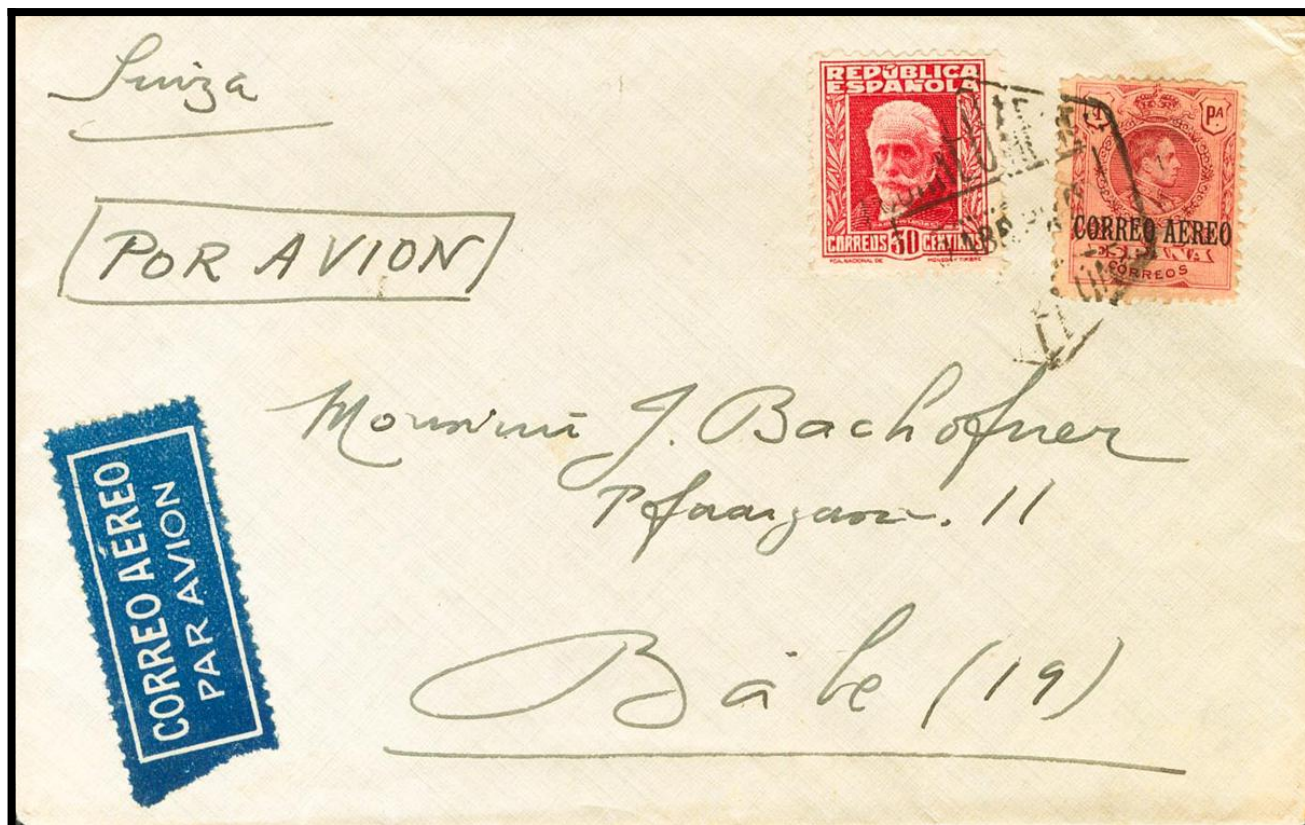 Suiza
POR AVION
REPÚBLICA
ESPAÑOLA
CORREOS 30 CENTIMS
1 PA
CORREO AÉREO
CORREOS
CORREO AÉREO
PAR AVION
J. Bachofner
11
Bâle (19)